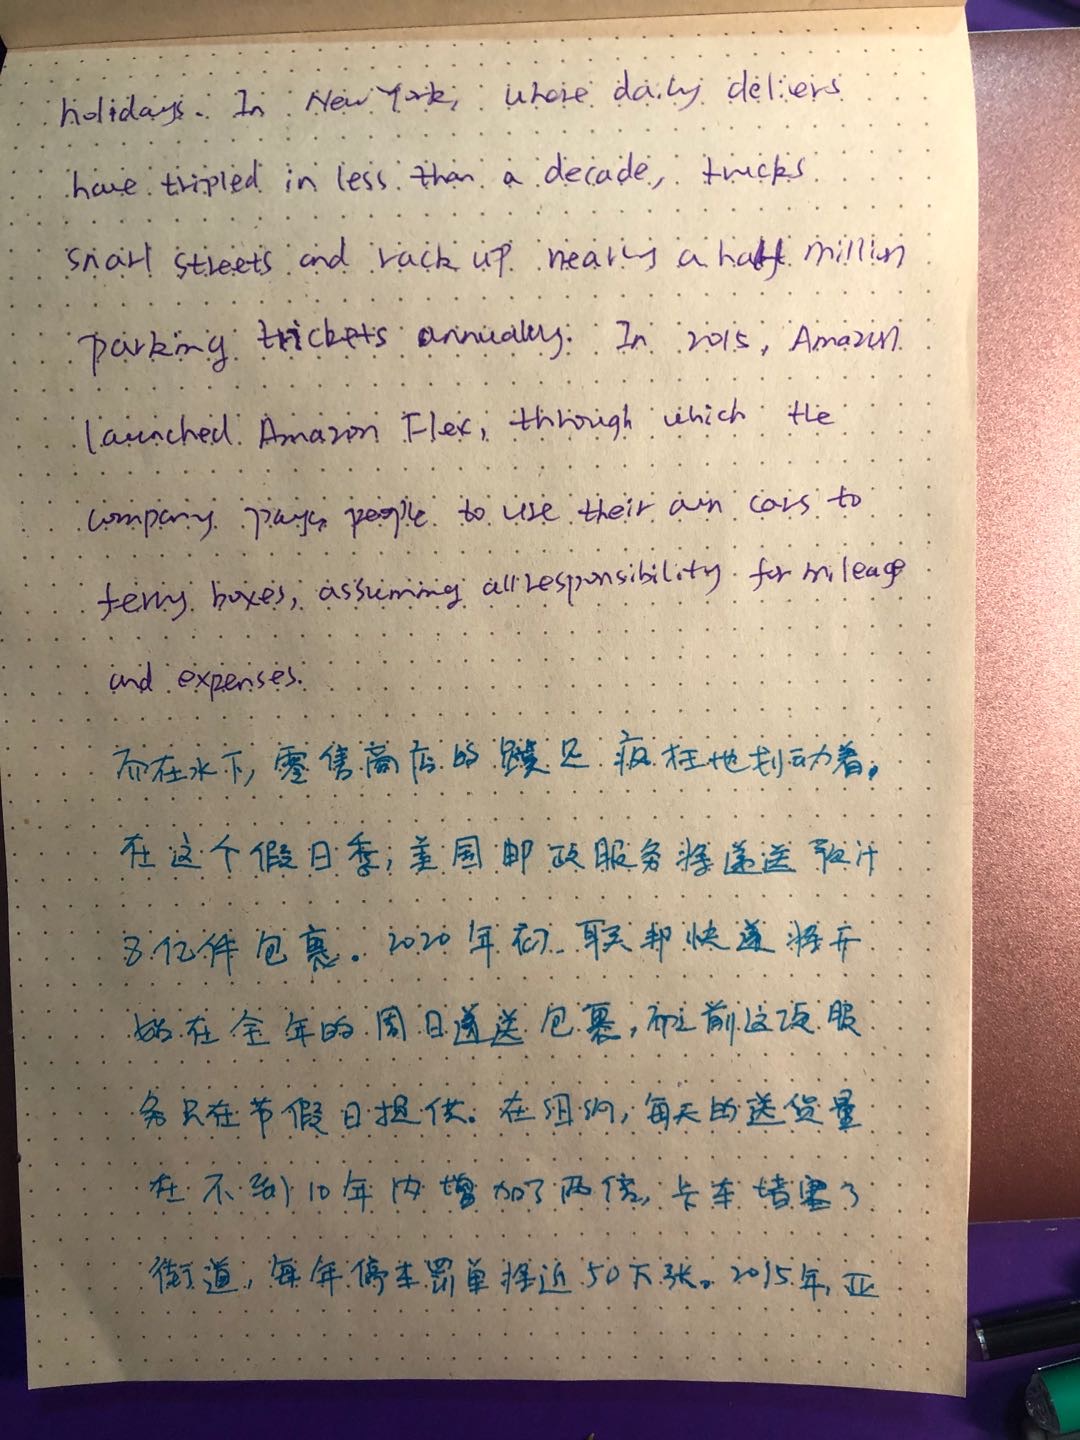 holidays. In New York, where daily deliers
have tripled in less than a decade, trucks
snarl streets and rack up nearly a half million
parking tickets annually. In 2015, Amazon
launched Amazon Flex, through which the
company pays people to use their own cars to
ferry boxes, assuming all responsibility for mileage
and expenses.
而在水下，零售商店的蹼足疯狂地划动着。
在这个假日季，美国邮政服务将递送预计
8亿件包裹。2020年初，联邦快递将开
始在全年的周日递送包裹，而之前这项服
务只在节假日提供。在纽约，每天的送货量
在不到10年内增加了两倍，卡车堵塞了
街道，每年停车罚单将近50万张。2015年，亚